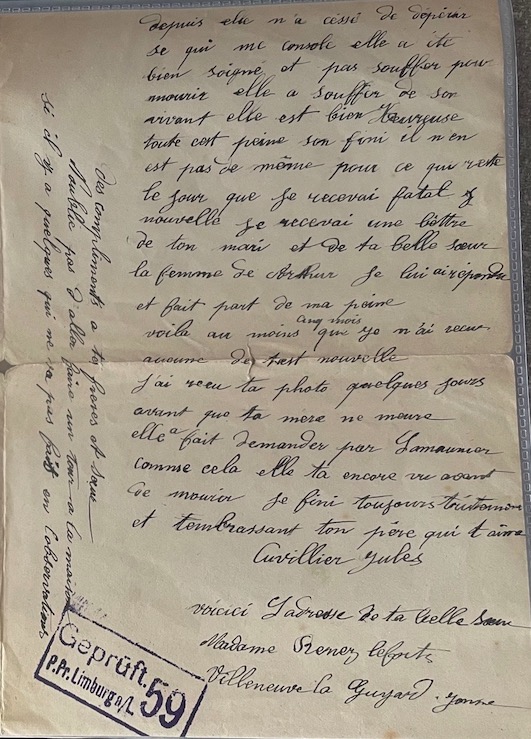 depuis elle n'a céssé de dépérir
se qui me console elle a ité
bien soigné et pas souffer pour
mourir elle a souffer de son
vivant elle est bien Heureuse
toute cest peine son fini il n'en
est pas de même pour ce qui reste
le jour que je recevai fatal
nouvelle je recevai une lettre
de ton mari et de ta belle sœur
la femme de Arthur je lui ai répondu
et fait part de ma peine
voila au moins cinq mois que je n'ai recu
aucune de test nouvelle
j'ai recu ta photo quelques jours
avant que ta mere ne meure
elle a fait demander par Lamaunier
comme cela elle ta encore vu avant
de mourir je fini toujours tristement
et tembrassant ton père qui t'aime
Cuvillier Jules
voicici L'adresse de ta belle sœur
Madame Renez
Villeneuve la Guyard. Yonne
des compliments a te freres et sœur
Noublie pas d'alle faire un tour a la maison
si il y a quelques qui ne va pas fait en l'observation
Geprüft.
P.Pr. Limburg a/L
59